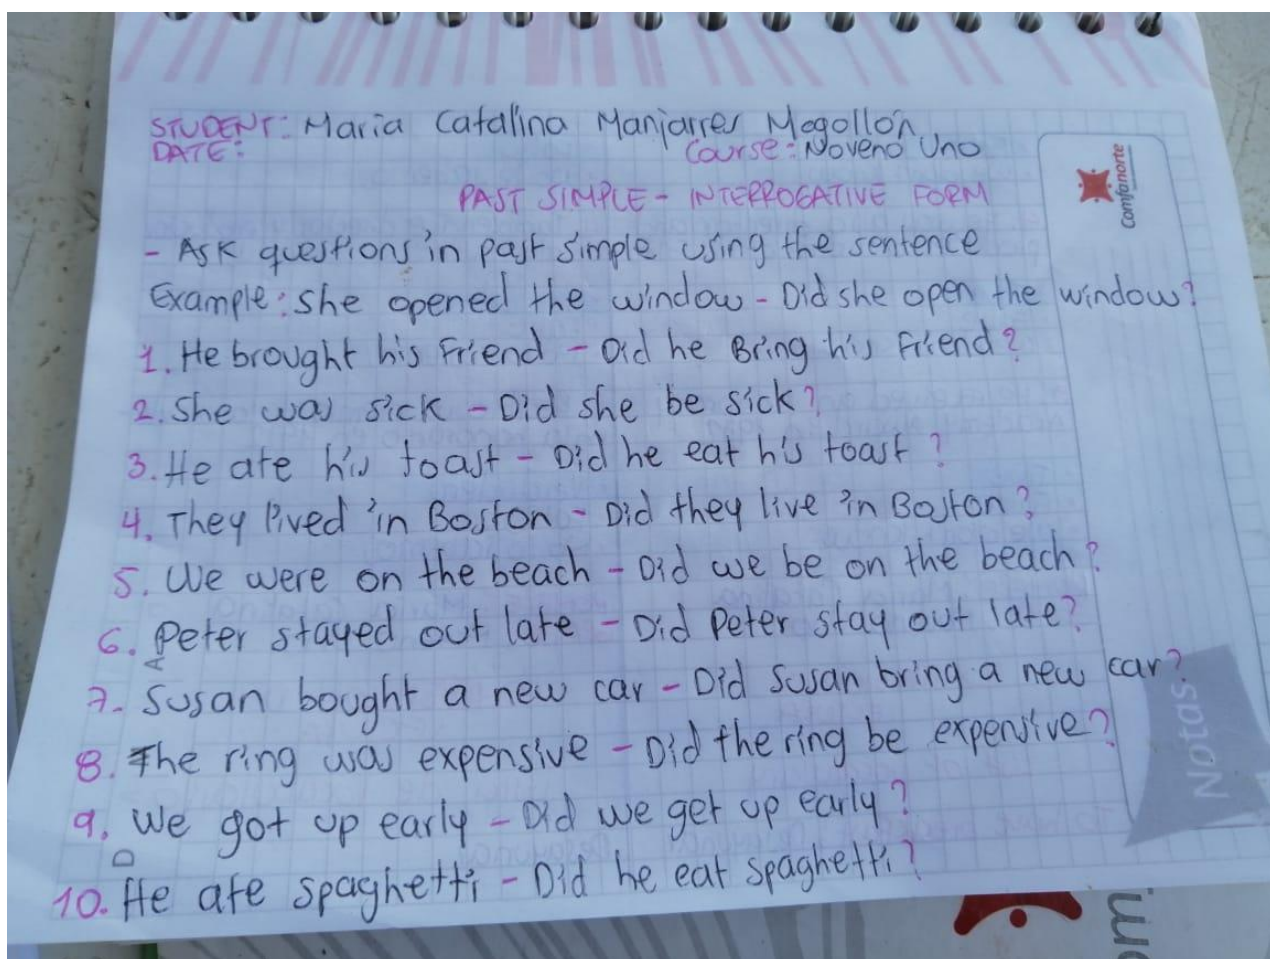 STUDENT: Maria Catalina Manjarres Mogollón
DATE: Course: Noveno Uno
PAST SIMPLE - INTERROGATIVE FORM
- Ask questions in past simple using the sentence
Example: She opened the window - Did she open the window?
1. He brought his Friend - Did he Bring his Friend?
2. She was sick - Did she be sick?
3. He ate his toast - Did he eat his toast?
4. They lived in Boston - Did they live in Boston?
5. We were on the beach - Did we be on the beach?
6. Peter stayed out late - Did Peter stay out late?
7. Susan bought a new car - Did Susan bring a new car?
8. The ring was expensive - Did the ring be expensive?
9. We got up early - Did we get up early?
10. He ate spaghetti - Did he eat spaghetti?
Comfanorte
Notas
om.